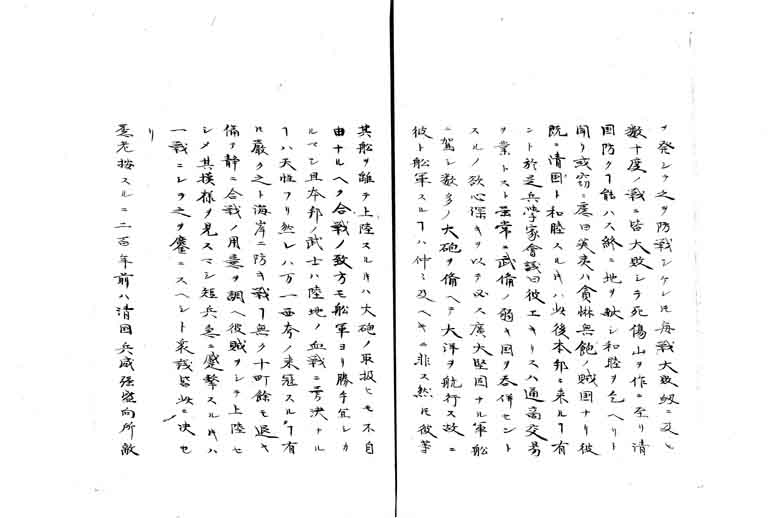 ヲ発シテ之ヲ防戦シケレ𪜈毎戦大敗績ニ及ヒ
数十度ノ戦ニ皆大敗シテ死傷山ヲ作ニ至リ清
国防クヿ能ハス終ニ地ヲ献シ和睦ヲ乞ヘリト
聞リ或窃ニ慮曰英夷ハ貪惏無飽ノ賊国ナリ彼
既ニ清国ト和睦スルキハ此後本邦ニ来ルヿ有
ント於是兵学家會議曰彼エキリスハ通商交易
ヲ業トスト雖常ニ武備ノ弱キ国ヲ呑併セント
スルノ欲心深キヲ以テ必ス廣大堅固ナル軍船
ニ駕シ数多ノ大砲ヲ備ヘテ大洋ヲ航行ス故ニ
彼ト船軍スルヿハ仲々及ヘキニ非ス然𪜈彼等
其船ヲ離テ上陸スルキハ大砲ノ取扱ヒモ不自
由ナルヘク合戦ノ致方モ船軍ヨリ勝手宜シカ
ルヘシ且本邦ノ武士ハ陸地ノ血戦ニ勇決ナル
ヿハ天性ナリ然レハ万一西夷ノ来冦スルヿ有
ハ厳ク之ト海岸ニ防キ戦ヿ無ク十町餘モ退キ
備テ静ニ合戦ノ用意ヲ調ヘ彼賊ヲシテ上陸セ
シメ其模様ヲ見スマシ短兵急ニ蹙撃スルキハ
一戦ニシテ之ヲ鏖ニスヘシト衆議皆此ニ決セ
リ
愚老按スルニ二百年前ハ清国兵威強向所敵